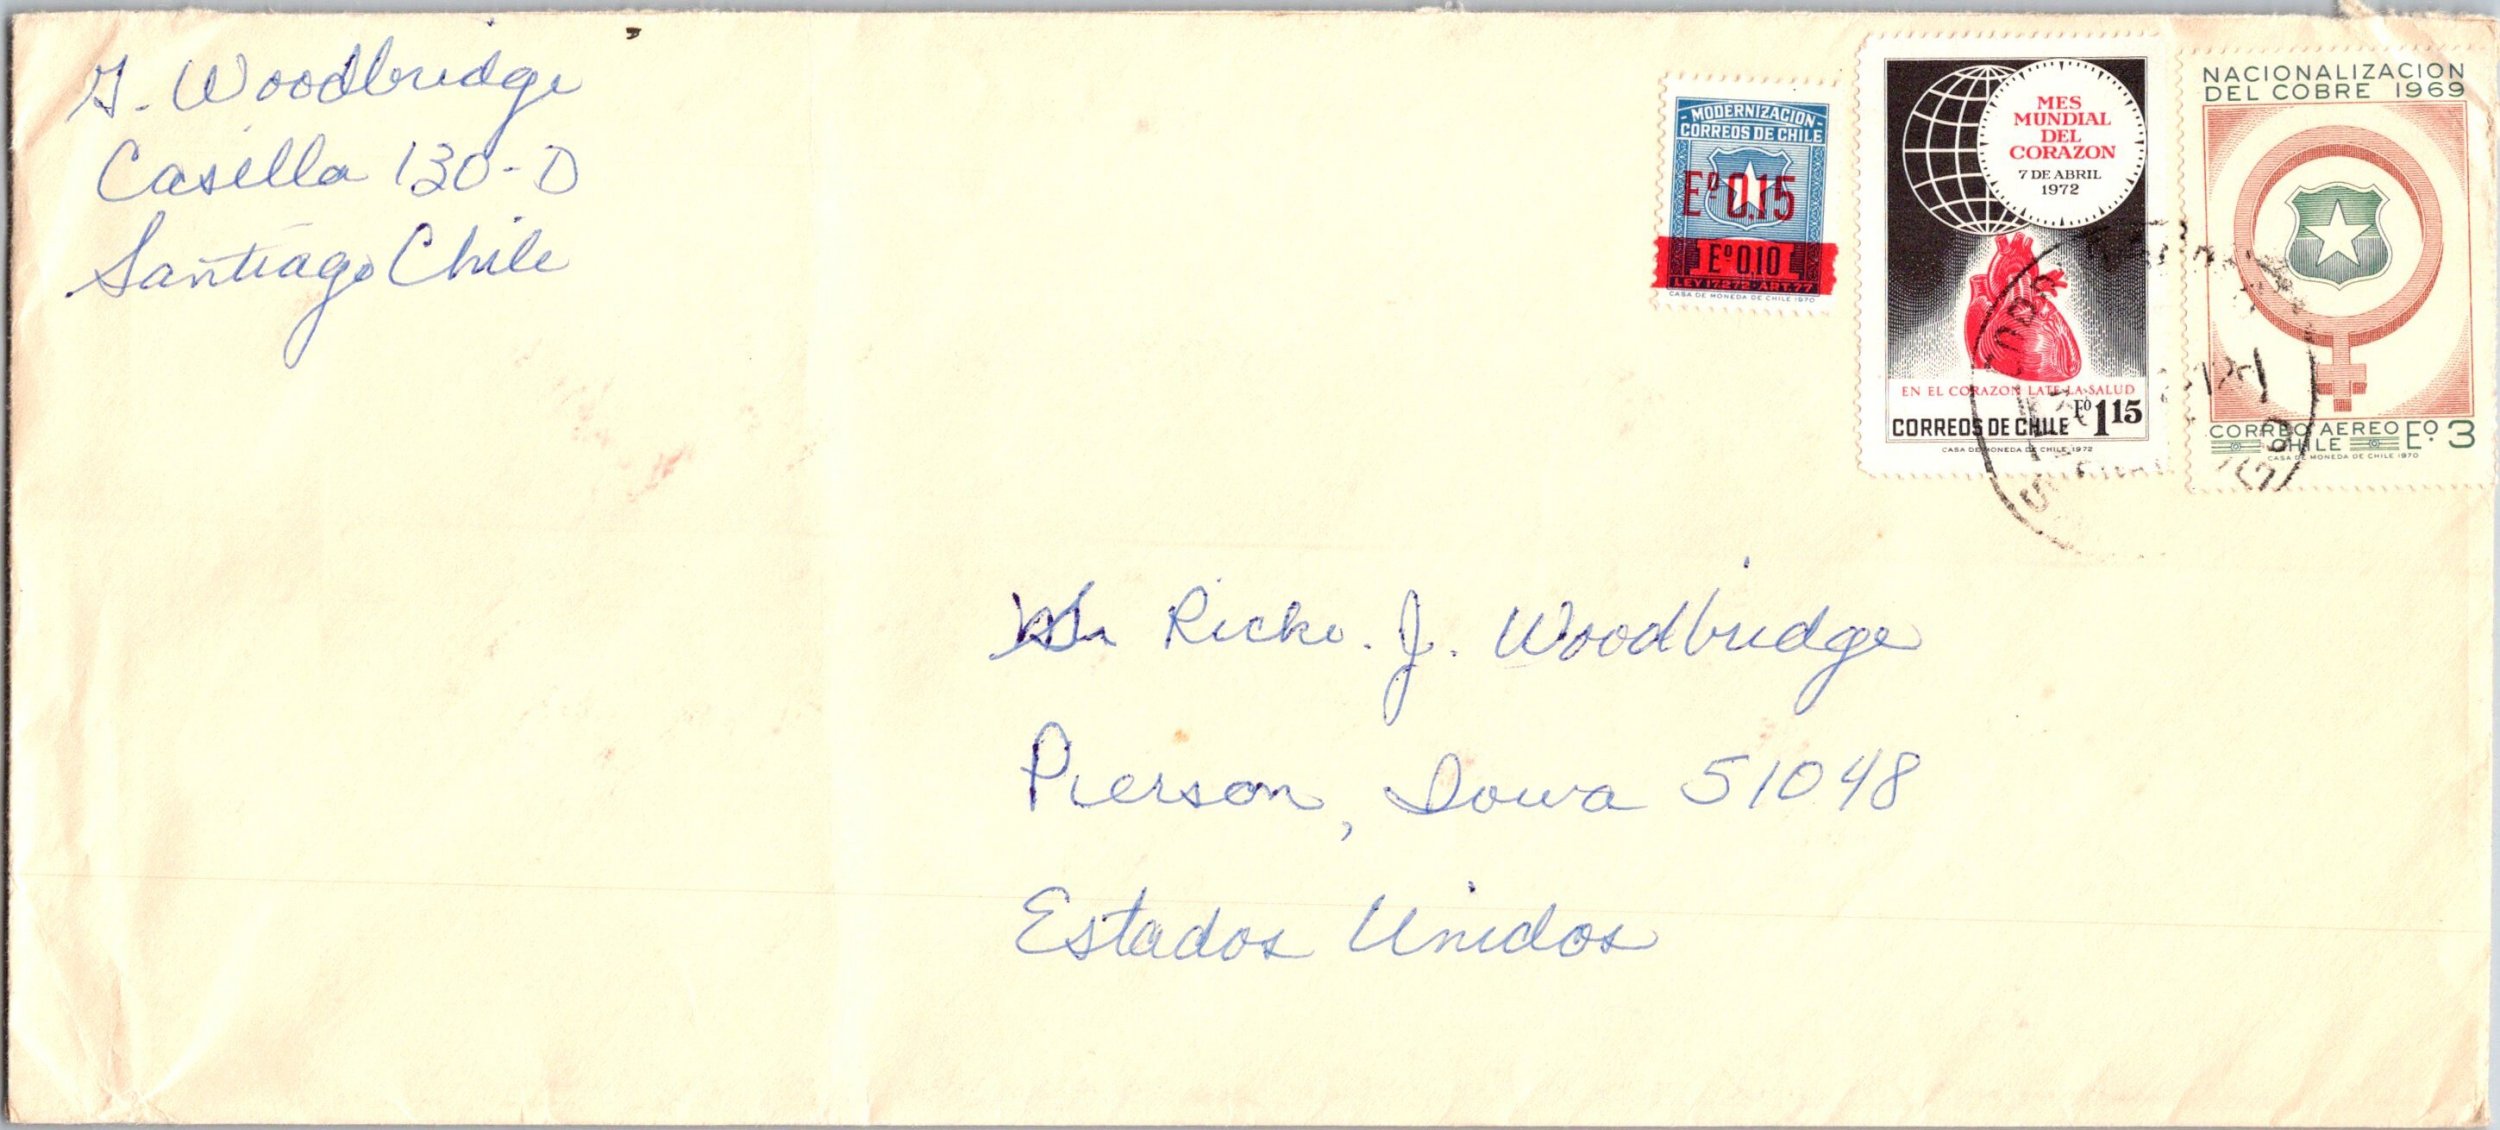 G. Woodbridge
Casilla 130-D
Santiago Chile
MODERNIZACION
CORREOS DE CHILE
Eº 0.15
Eº 0.10
LEY 17.272 - ART. 77
CASA DE MONEDA DE CHILE 1970
MES
MUNDIAL
DEL
CORAZON
7 DE ABRIL
1972
EN EL CORAZON LATE LA SALUD
CORREOS DE CHILE Eº 1 15
CASA DE MONEDA DE CHILE 1972
NACIONALIZACION
DEL COBRE 1969
CORREO AEREO Eº. 3
CHILE
CASA DE MONEDA DE CHILE 1970
J. Woodbridge
Pierson, Iowa 51048
Estados Unidos